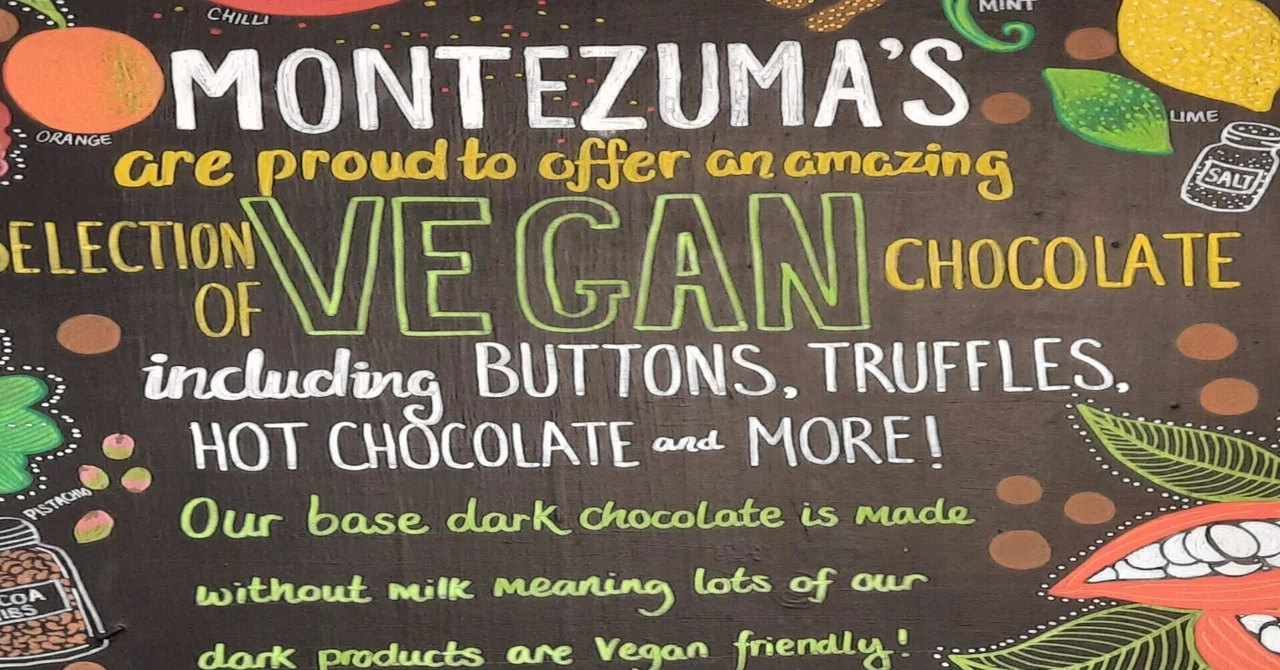 CHILLI
MINT
MONTEZUMA'S
ORANGE
LIME
are proud to offer an amazing
SALT
SELECTION
OF
VEGAN
CHOCOLATE
including BUTTONS, TRUFFLES,
HOT CHOCOLATE and MORE!
PISTACHIO
Our base dark chocolate is made
without milk meaning lots of our
dark products are Vegan friendly!